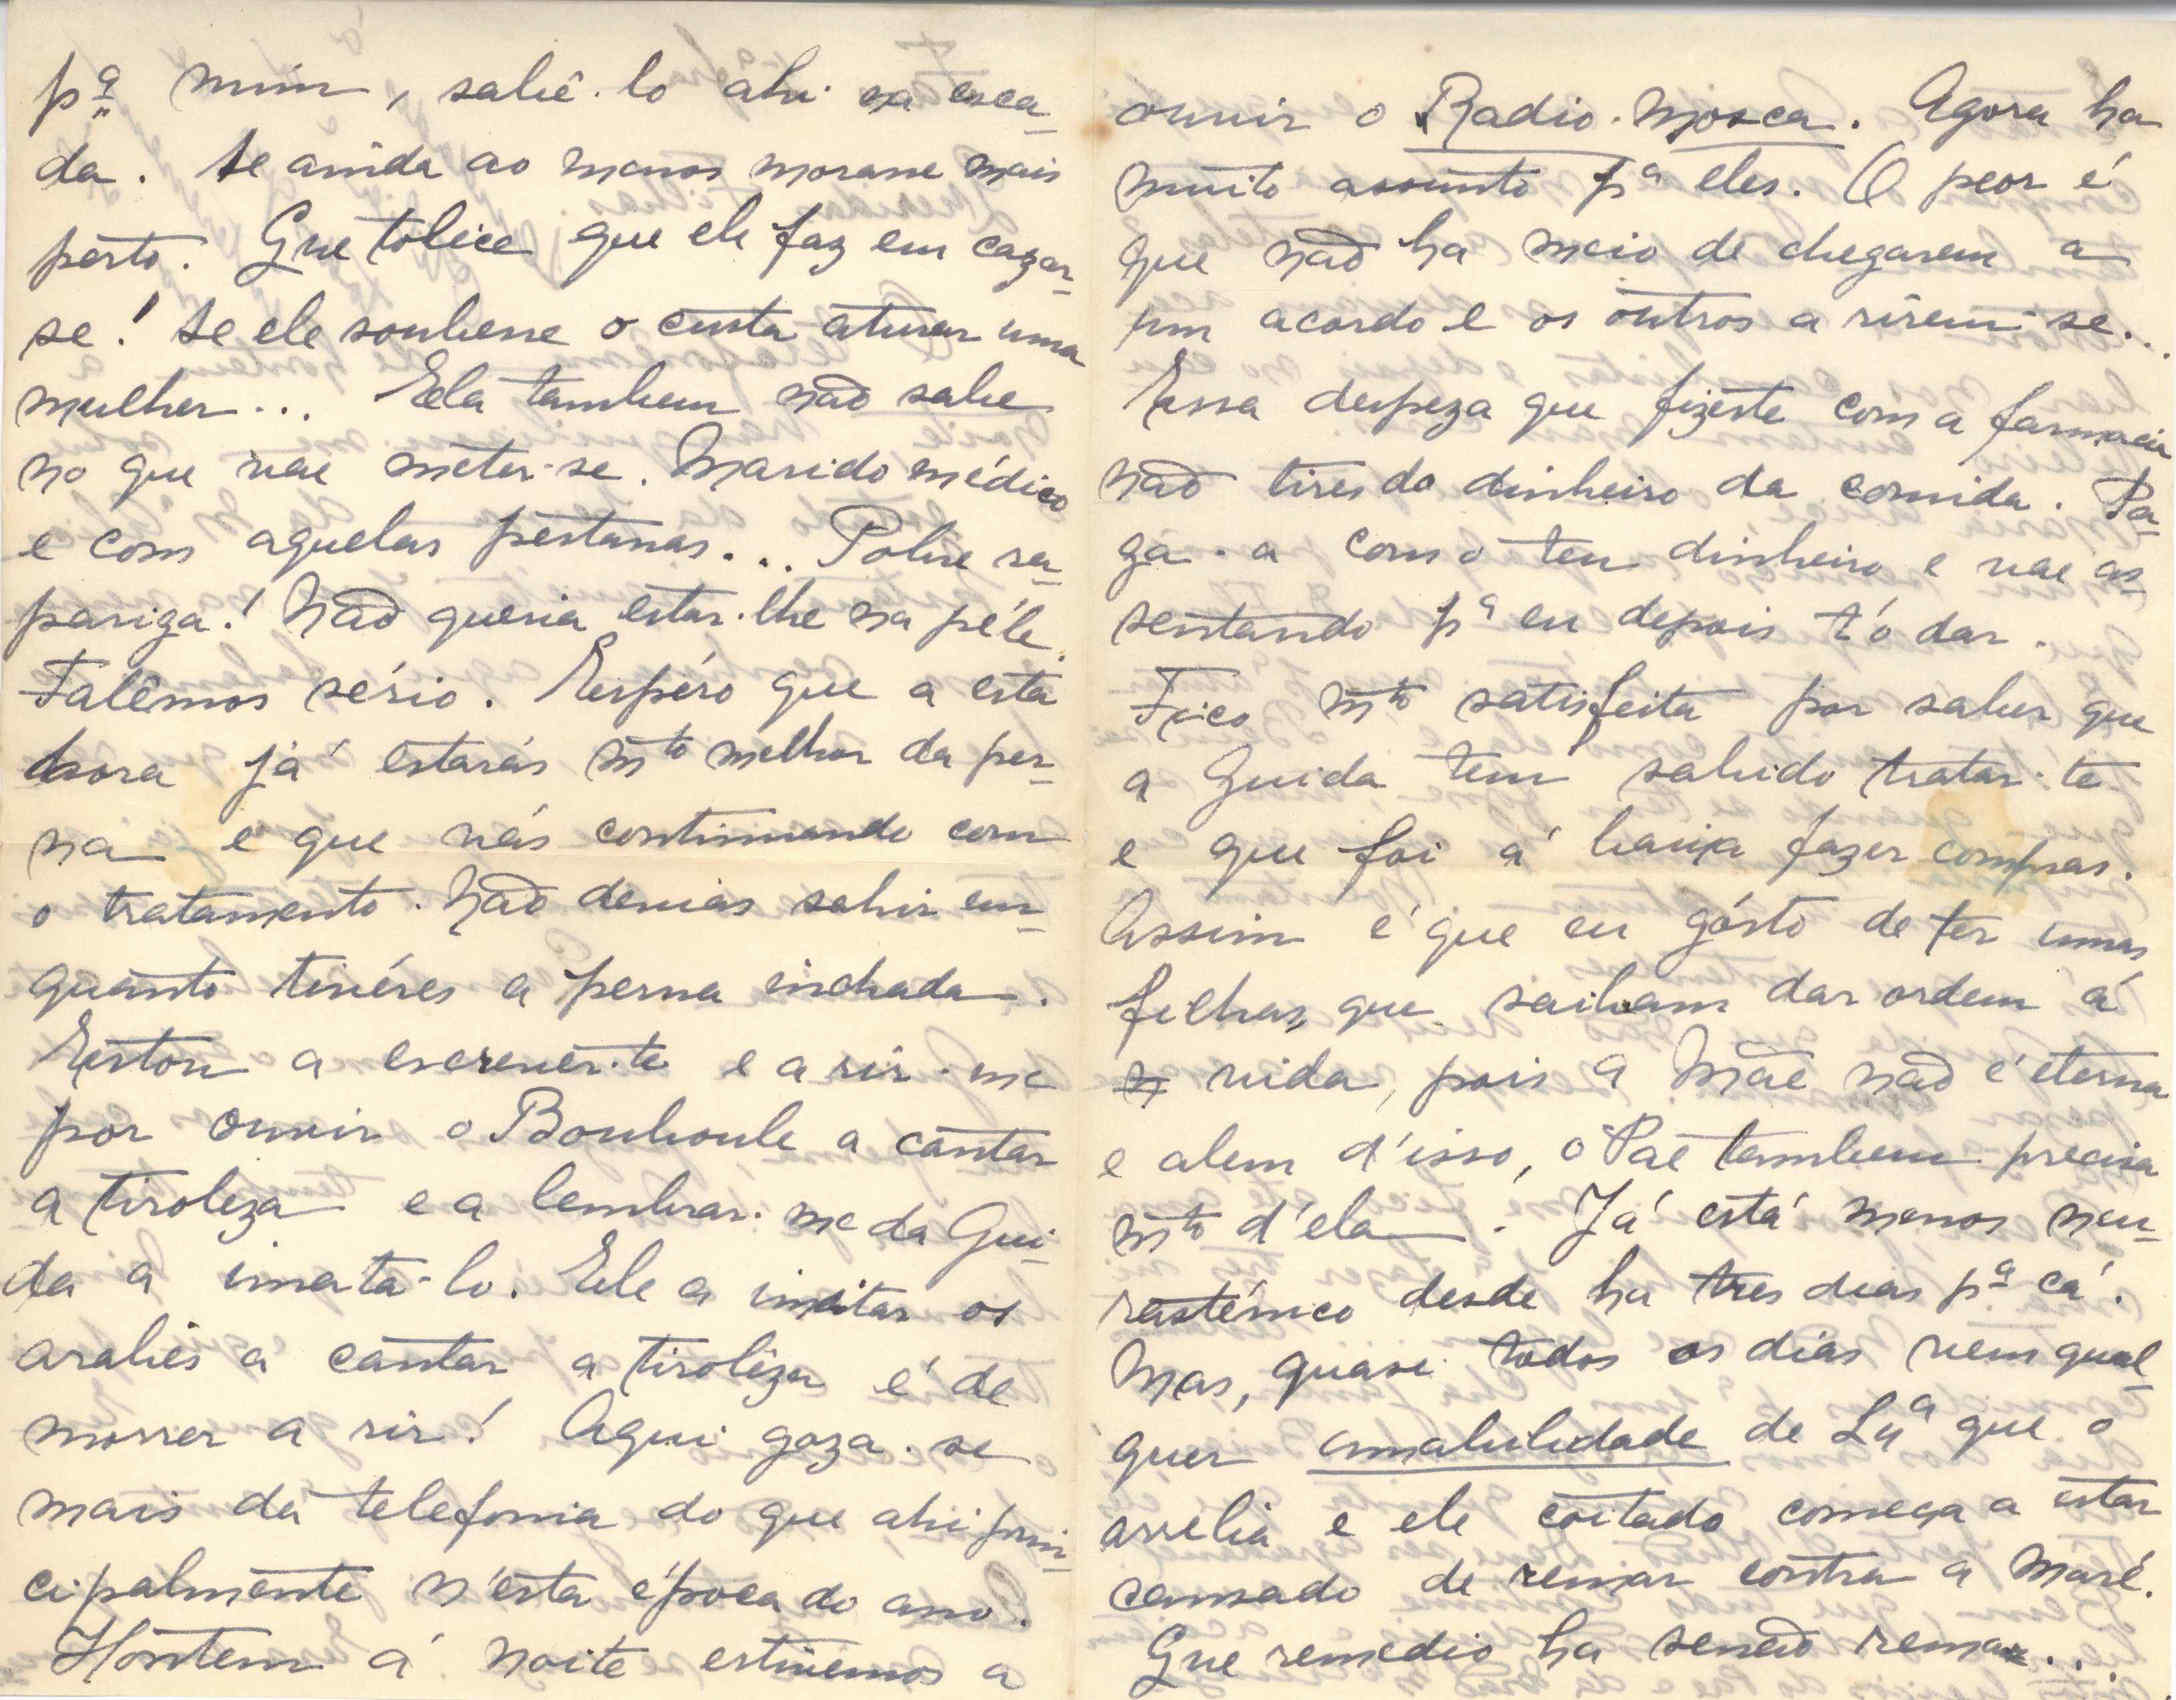 pª mim, sabê-lo ahi na esca-
da. Se ainda ao menos morasse mais
perto. Que tolice que ele faz em cazar-
se! Se ele soubesse o custa aturar uma
mulher... Ela tambem não sabe
no que vae meter-se. Marido médico
e com aquelas pestanas... Pobre ra-
pariga! Não queria estar-lhe na péle.
Falêmos sério. Espéro que a esta
hora já estarás mto melhor da per-
na e que vás continuando com
o tratamento. Não devias sahir en-
quanto tivéres a perna inchada.
Estou a escrever-te e a rir-me
por ouvir o Bouboule a cantar
a tiroleza e a lembrar-me da Gui-
da a imita-lo. Ele a imitar os
arabes a cantar a tiroleza é de
morrer a rir! Aqui goza-se
mais da telefonia do que ahi prin-
cipalmente n'esta época do ano.
Hontem á noite estivemos a
ouvir o Radio-Mosca. Agora ha
muito assunto pª eles. O peor é
que não ha meio de chegarem a
um acordo e os outros a rirem-se...
Essa despeza que fizeste com a farmacia
não tires do dinheiro da comida. Pa-
ga-a com o teu dinheiro e vae as-
sentando pª eu depois t'o dar.
Fico mto satisfeita por saber que
a Guida tem sabido tratar-te
e que foi á baixa fazer compras.
Assim é que eu gósto de ter umas
filhas, que saibam dar ordem á
vida, pois a Mãe não é eterna
e alem d'isso, o Pae tambem precisa
mto d'ela. Já está menos neu-
rasténico desde ha tres dias pª cá.
Mas, quase todos os dias vem qual-
quer amabilidade de Lxª que o
arrelia e ele coitado começa a estar
cansado de remar contra a maré.
Que remedio ha senão remar...